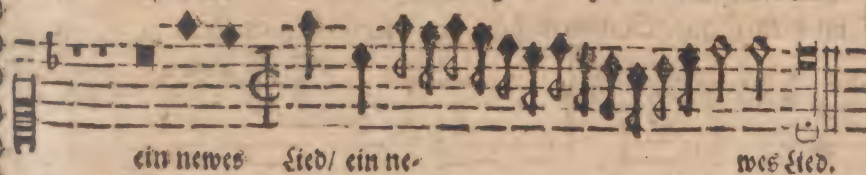 ein newes Lied/ ein ne- wes Lied.